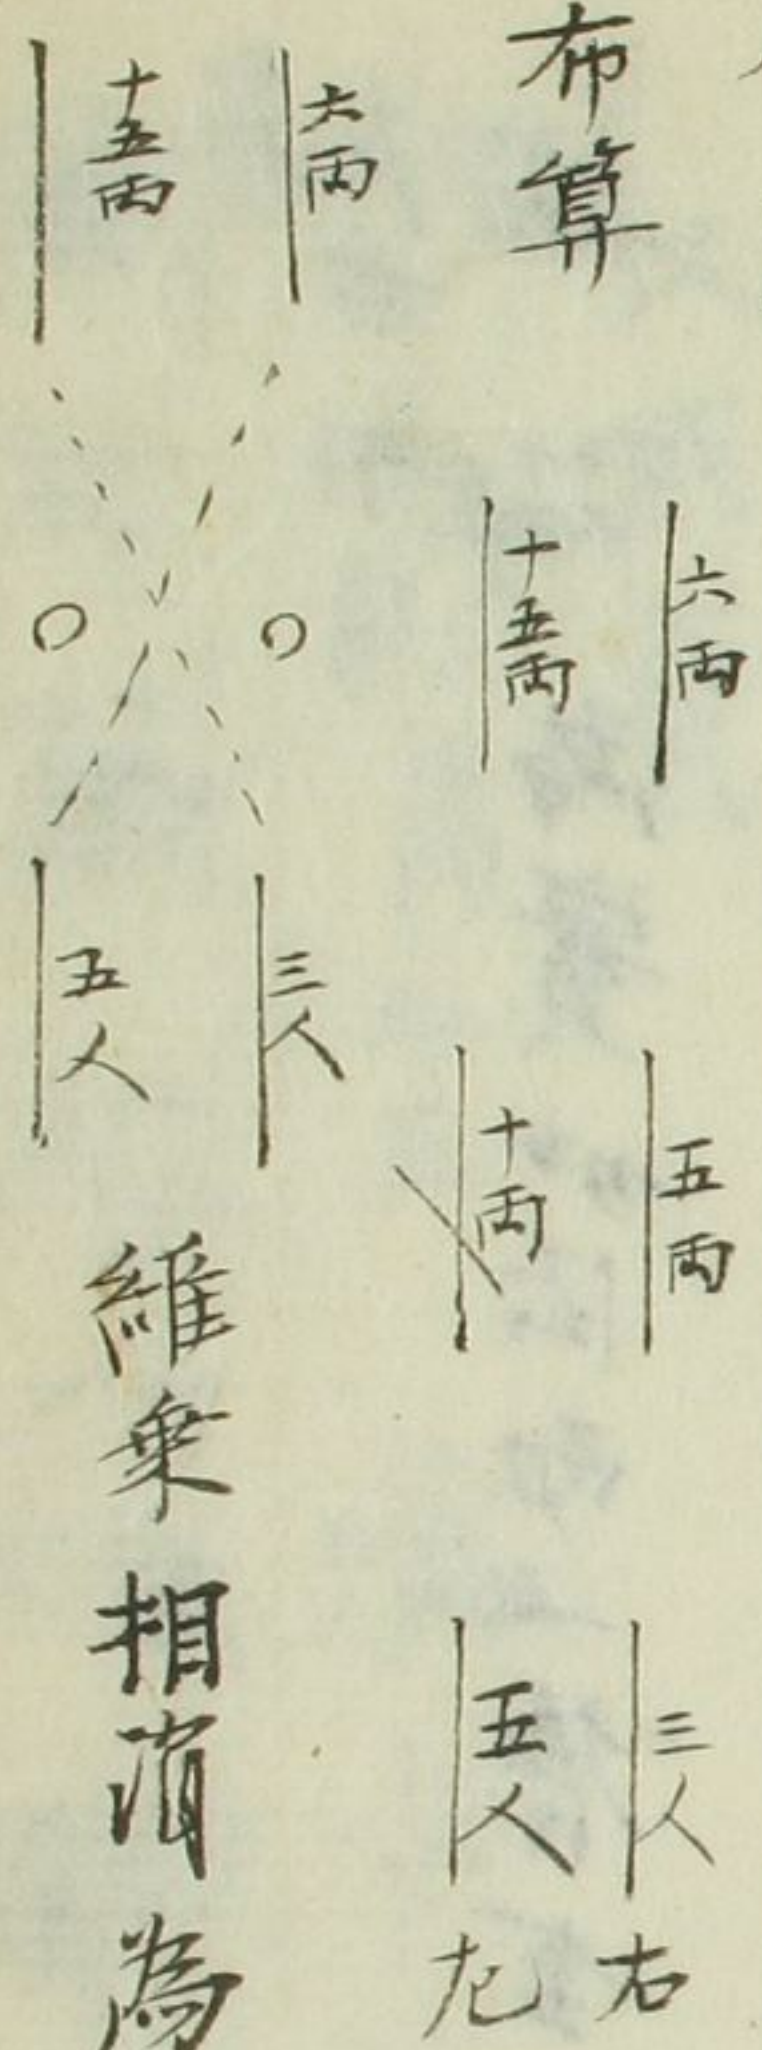 布算
六両 五両 三人 右
十五両 十両 五人 左
六両 〇 三人
十五両 〇 五人
維乗相消為